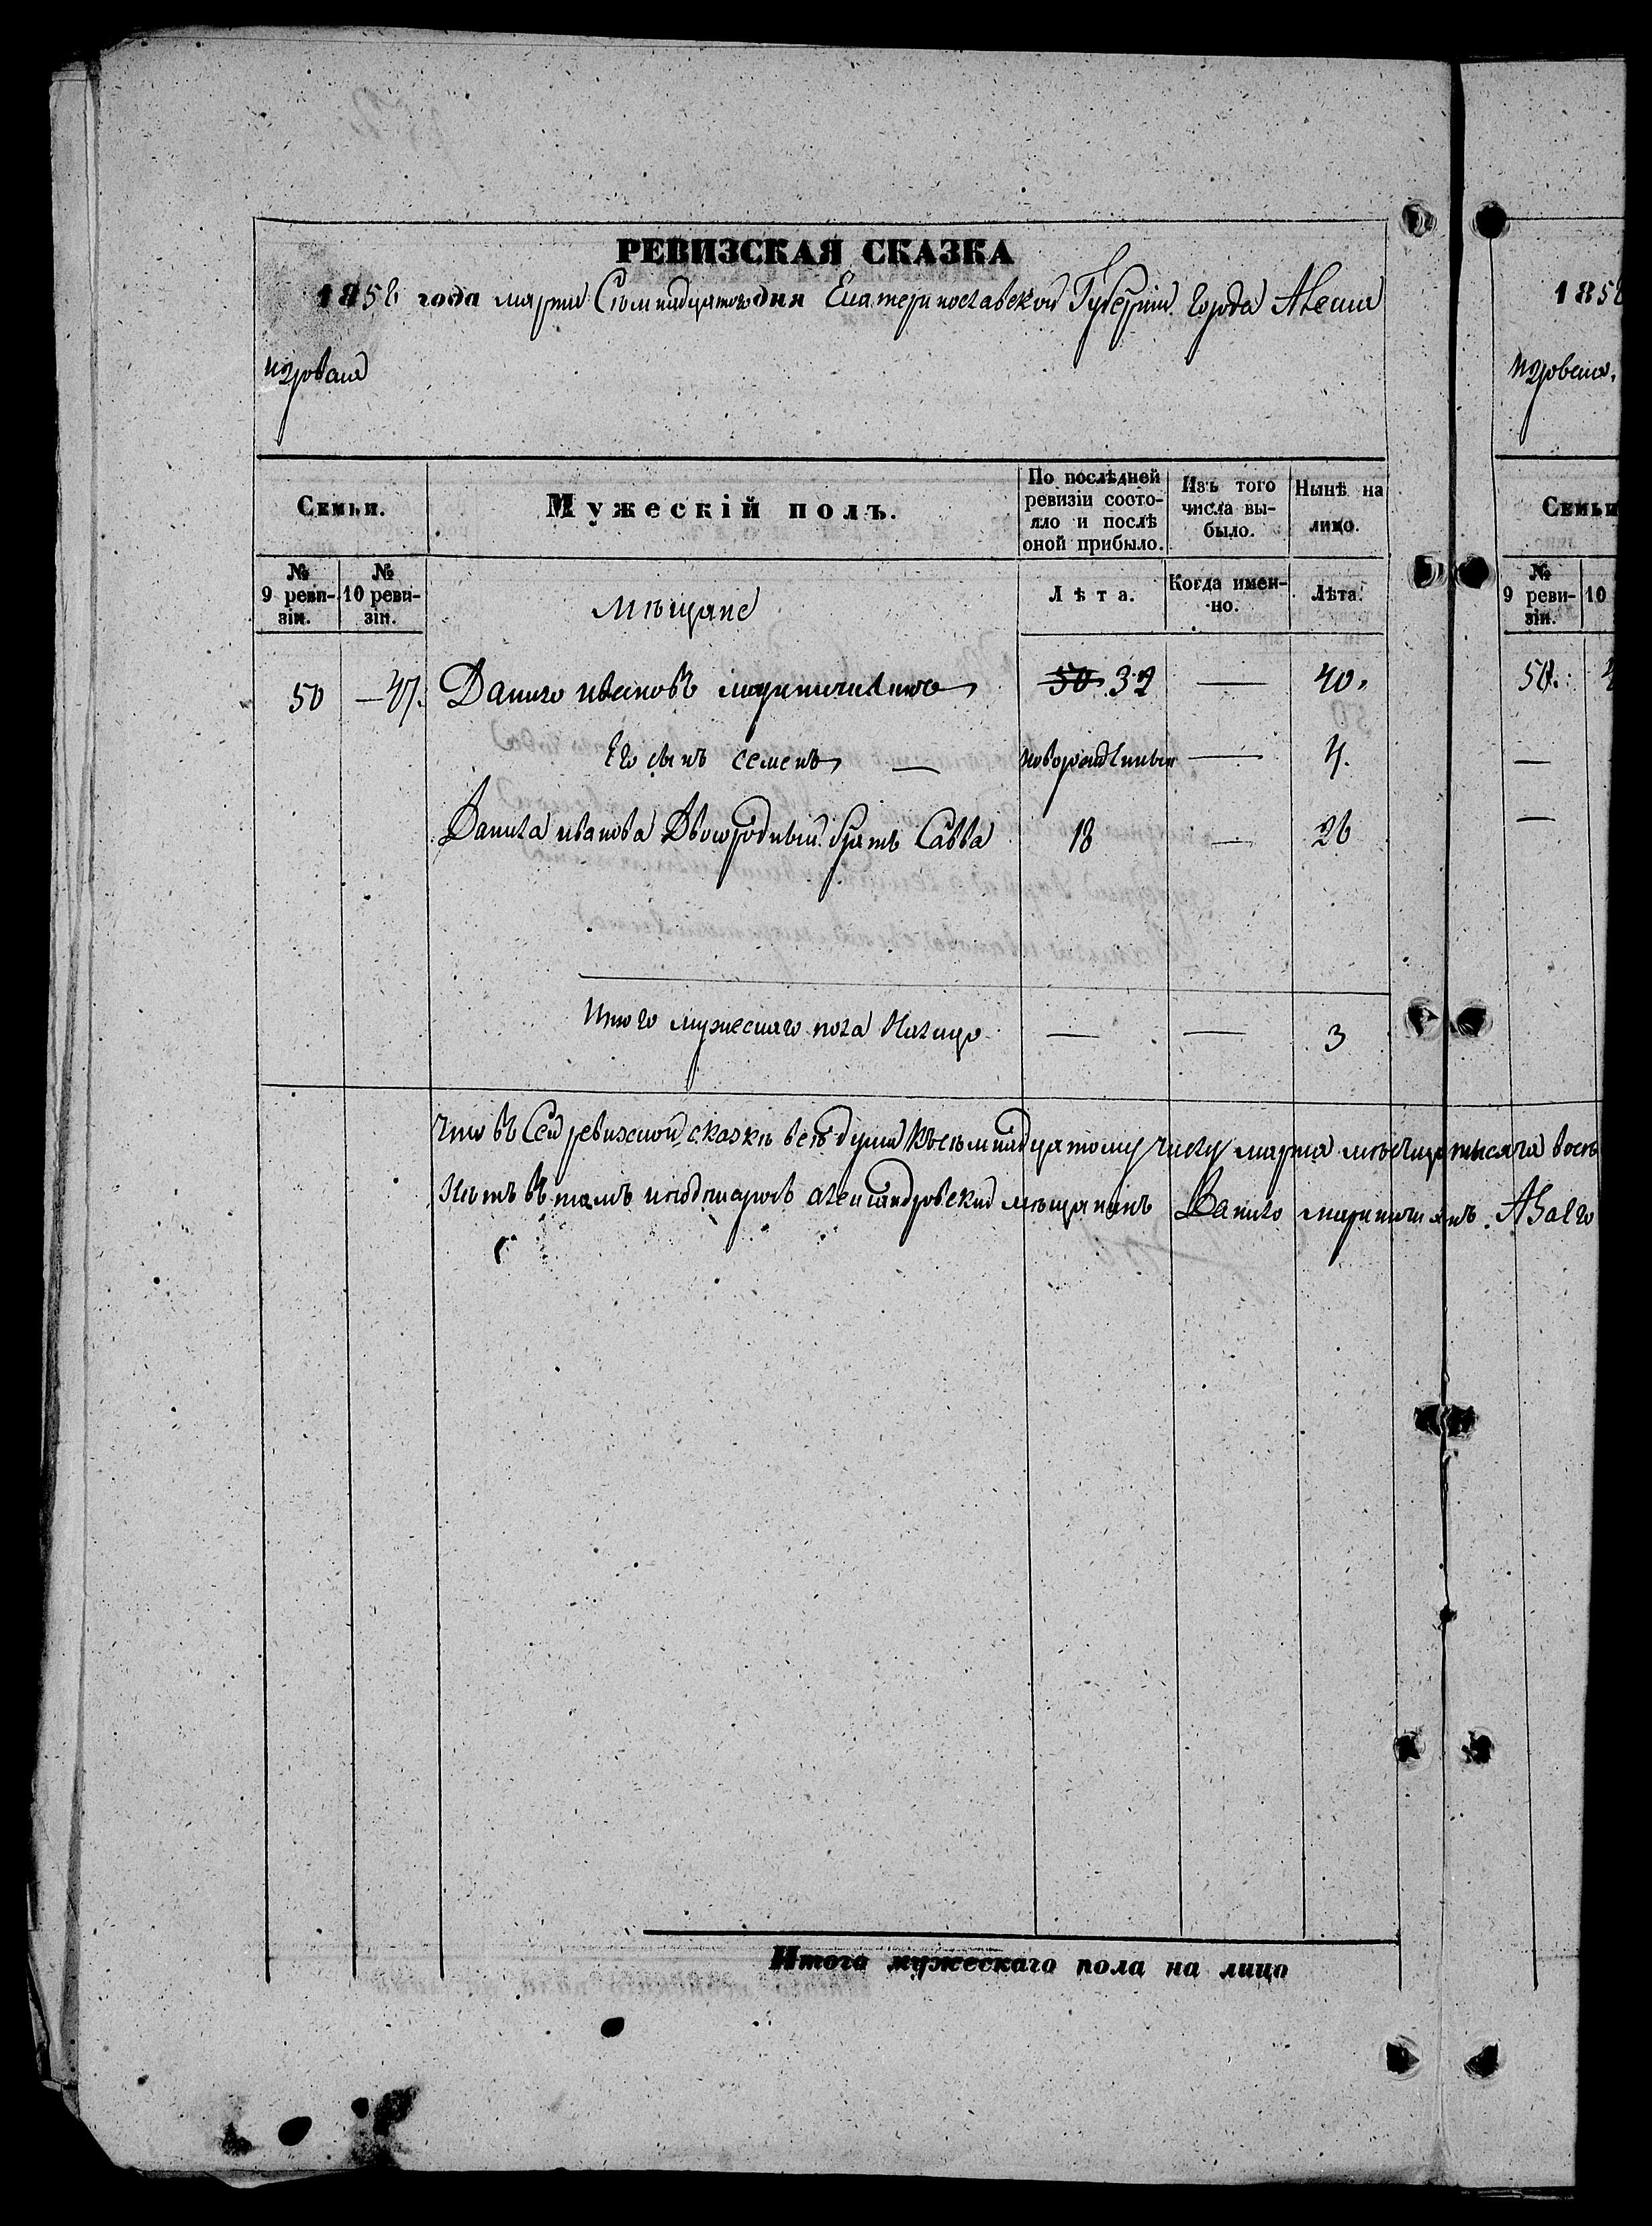 РЕВИЗСКАЯ СКАЗКА
1858 года марта Семнадцатого дня Екатеринославской Губерніи. Города Алекса
ндровска
Семьи.
Мужескій полъ.
По послѣдней ревизіи состояло и послѣ оной прибыло.
Изъ того числа выбыло.
Нынѣ на лицо.
№ 9 ревизіи.
№ 10 ревизіи.
Мѣщане
Лѣта.
Когда именно.
Лѣта.
50 — 47. Данило ивановъ 50 32 — 40.
Его сынъ семенъ — новорожденный — 4.
Данила иванова Двоюродный братъ Савва 18 — 26
Итого мужескаго пола Налицо — — 3
что въ Сей ревизской сказкѣ всѣ души къ семнадцатому числу марта мѣсяца тысяча восе
въ томъ и подписуюсь александровский мѣщанинъ Данило
Итого мужескаго пола на лицо
1858
Семьи
№ 9 ревизіи.
10
50.
—
—